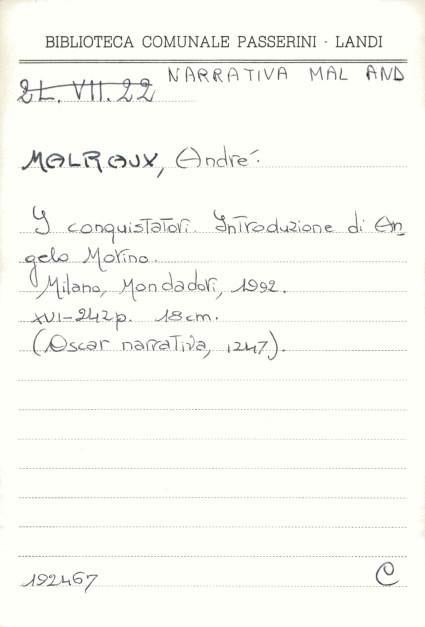 BIBLIOTECA COMUNALE PASSERINI - LANDI
NARRATIVA MAL AND
2L. VII. 22
MALRAUX, André.
I conquistatori. Introduzione di An
gelo Morino.
Milano, Mondadori, 1992.
XVI-242p. 18cm.
(Oscar narrativa, 1247).
192467 C